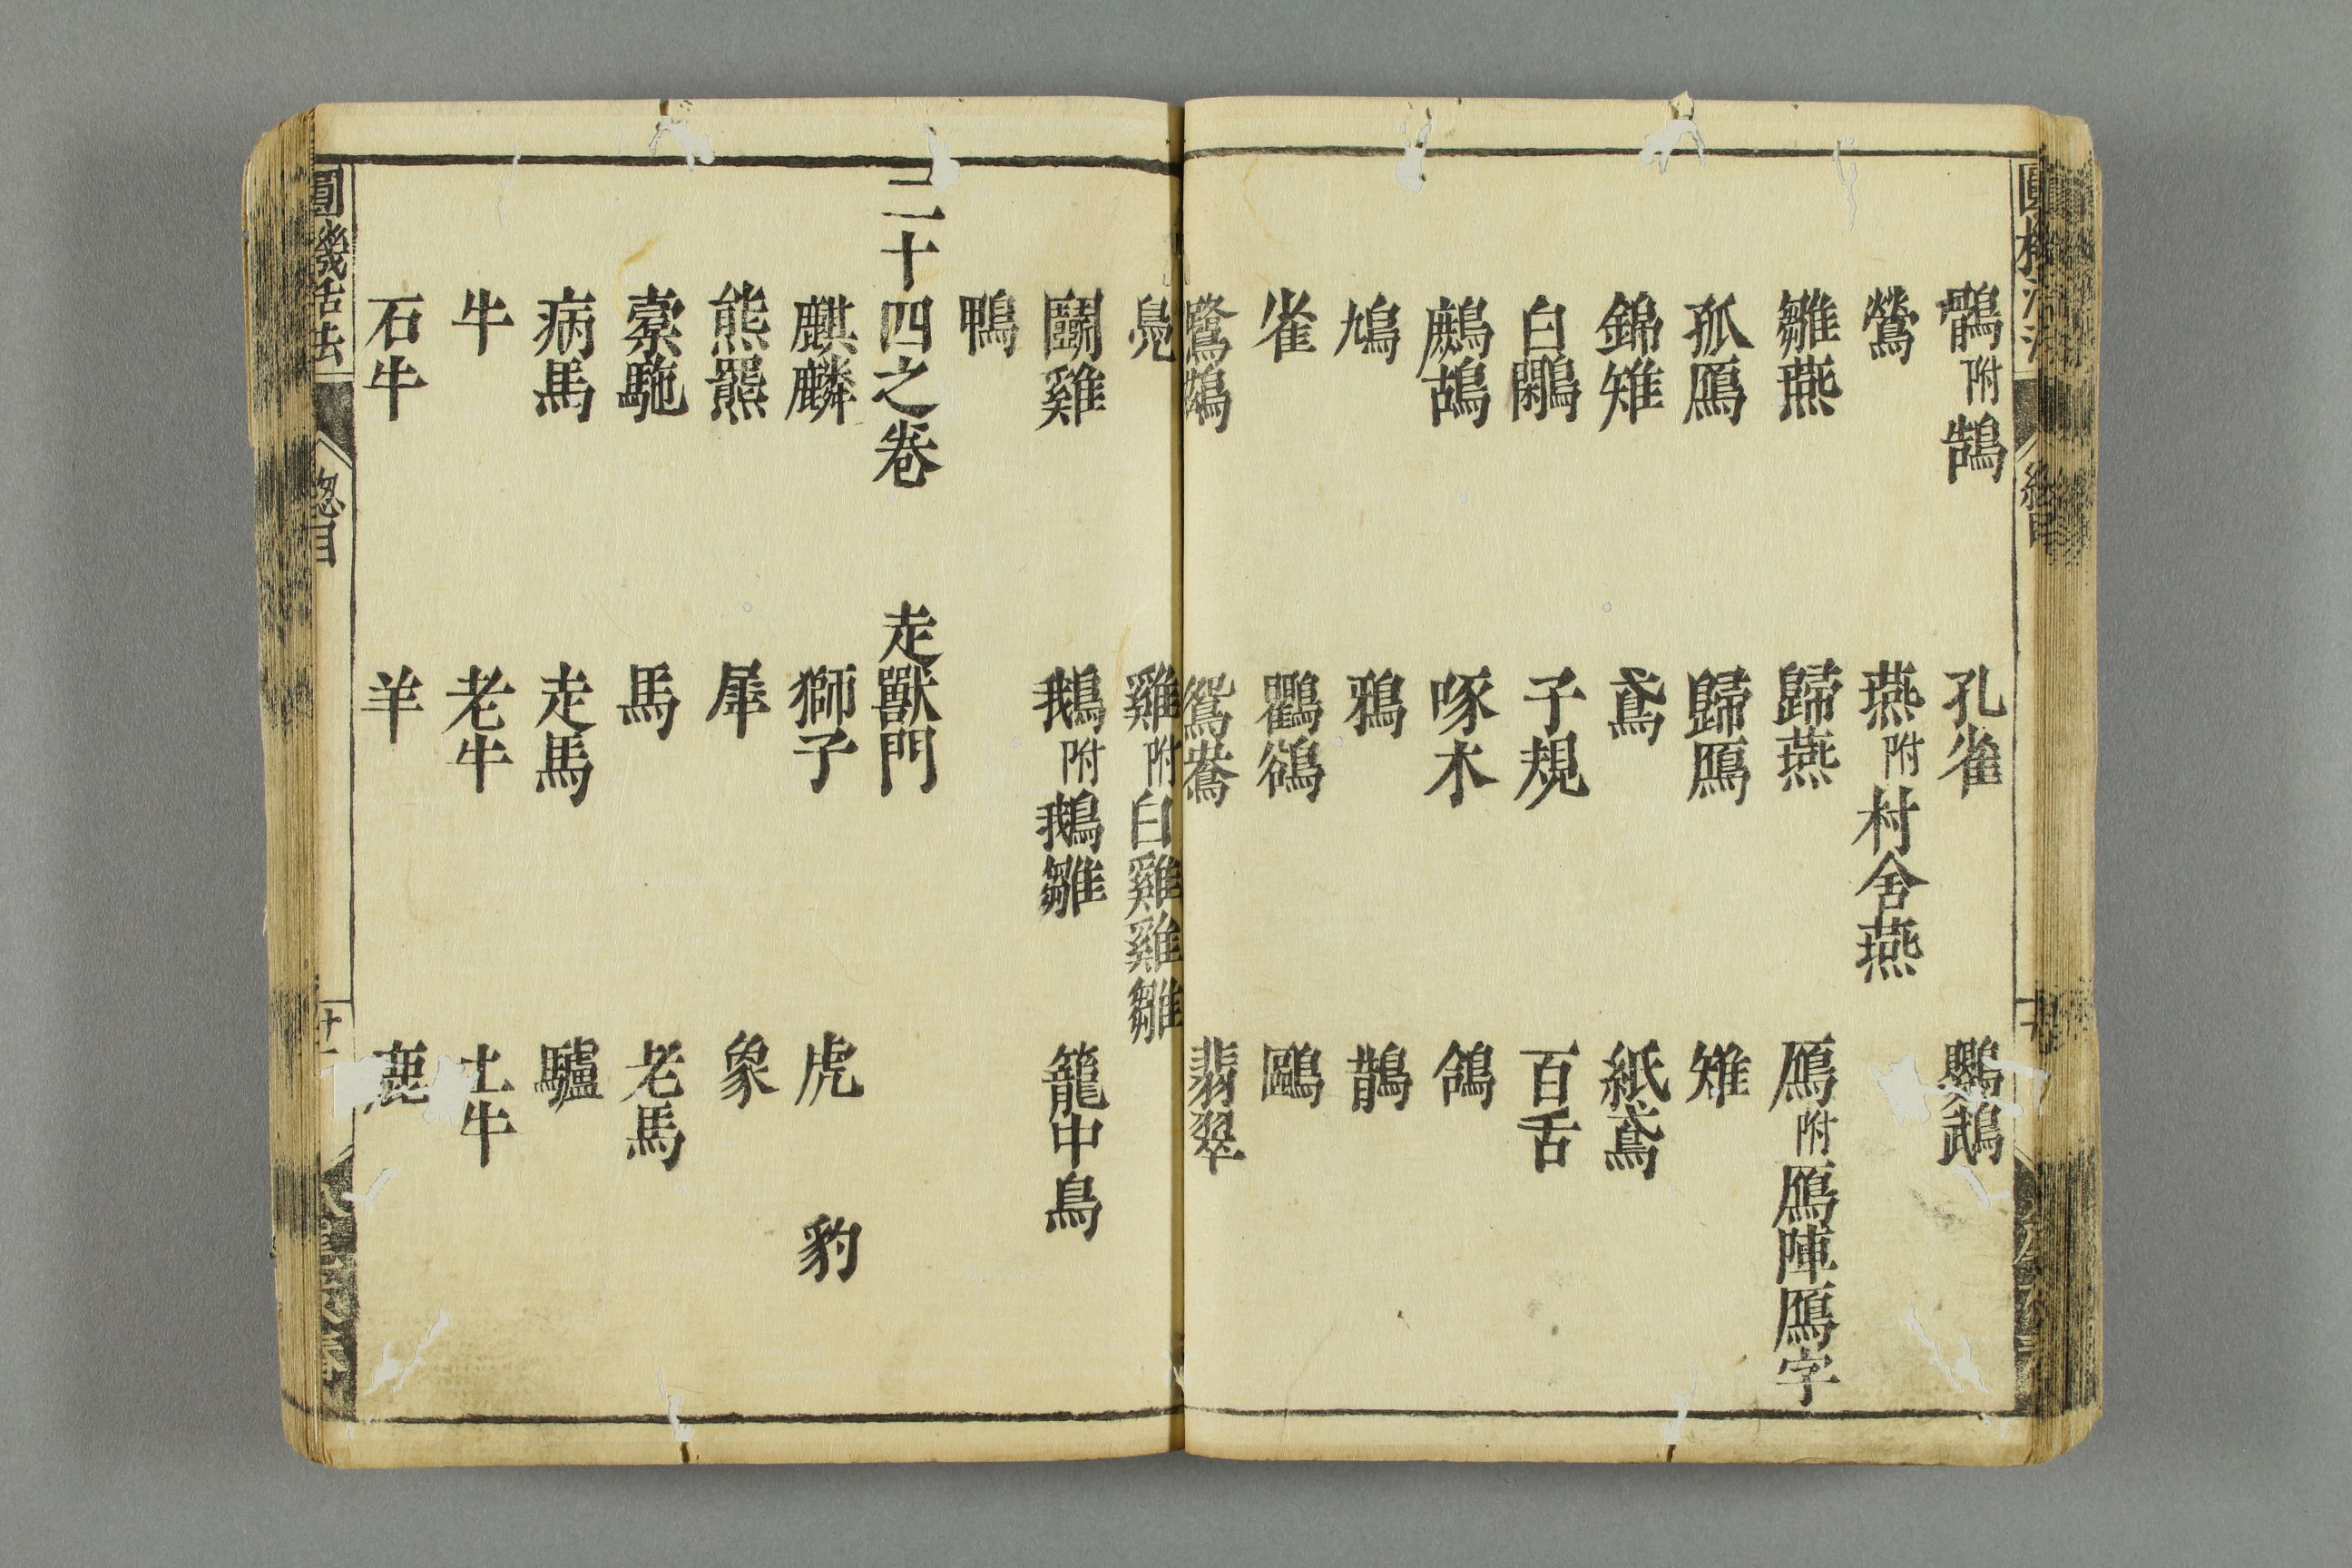 鶻附鵠 孔雀 鸚鵡
鶯 燕附村舍燕
雛燕 歸燕 鴈附鴈陣鴈字
孤鴈 歸鴈 雉
錦雉 鳶 紙鳶
白鷴 子規 百舌
鷓鴣 啄木 鴿
鳩 鴉 鵲
雀 鸜鵒 鷗
鷺鷥 鴛鴦 翡翠
鳧 雞附白雞雞雛
鬭雞 鵝附鵝雛 籠中鳥
鴨
二十四之卷 走獸門
麒麟 獅子 虎 豹
熊羆 犀 象
橐駞 馬 老馬
病馬 走馬 驢
牛 老牛 土牛
石牛 羊 鹿
圓機活法 總目